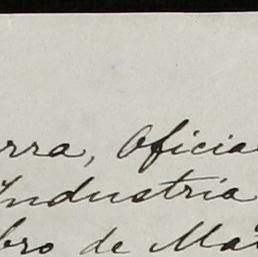 rra, Oficia
Industria
bro de Ma